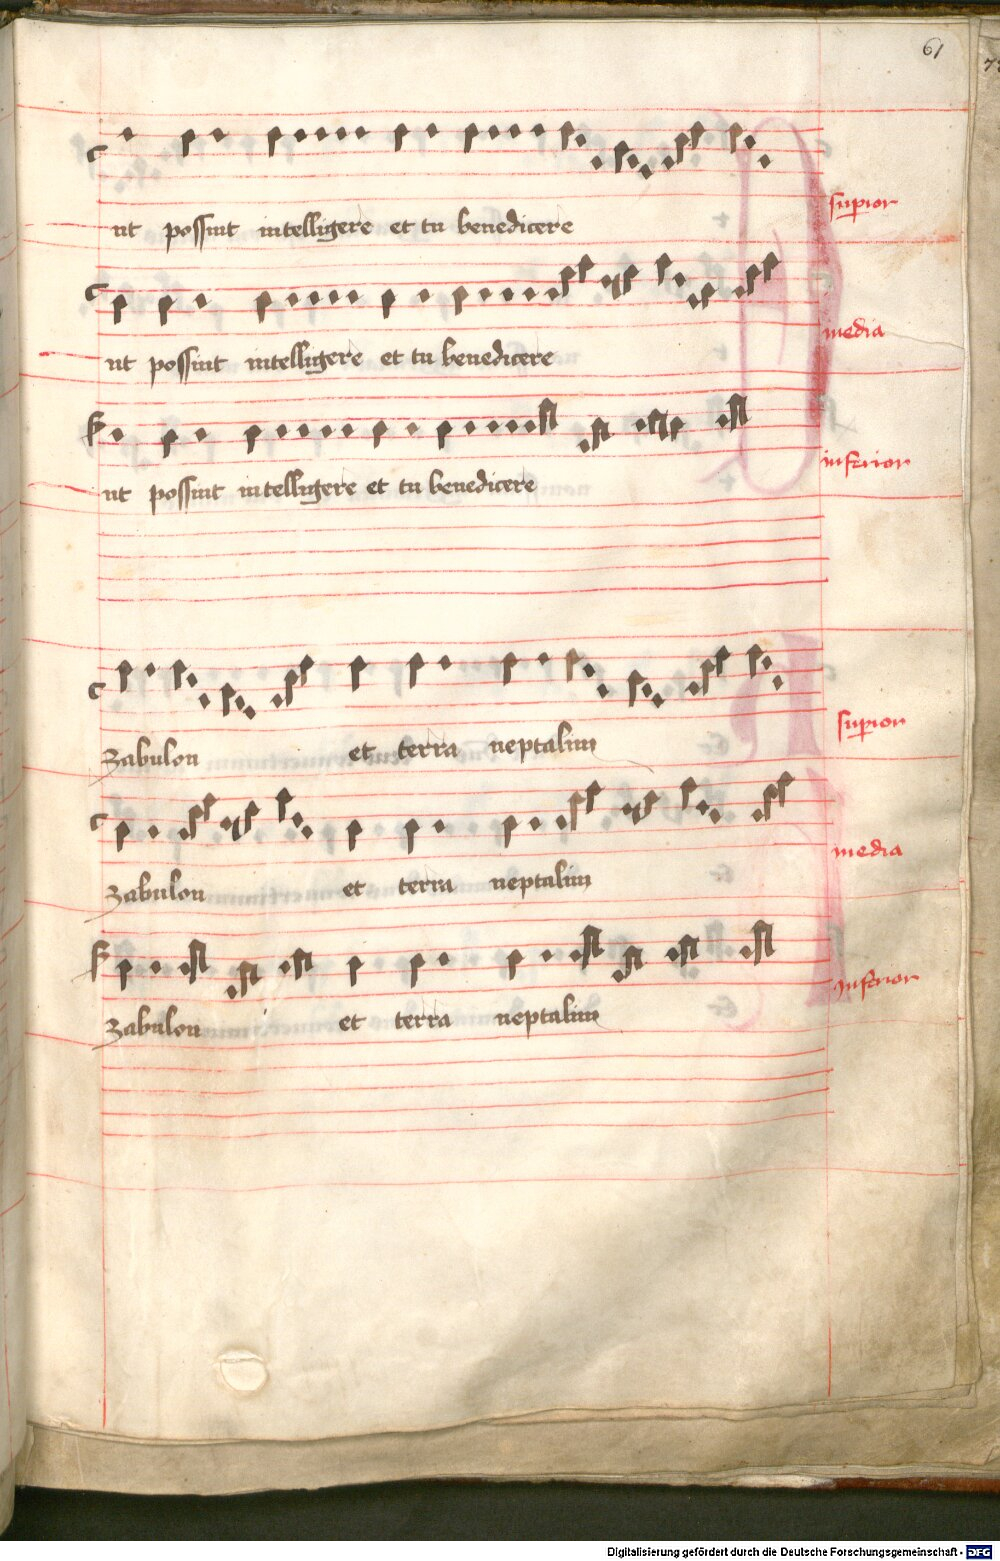 61
ut possint intelligere et tu benedicere
supior
ut possint intelligere et tu benedicere
media
ut possint intelligere et tu benedicere
inferior
zabulon et terra neptalim
supior
zabulon et terra neptalim
media
zabulon et terra neptalim
inferior
Digitalisierung gefördert durch die Deutsche Forschungsgemeinschaft - DFG